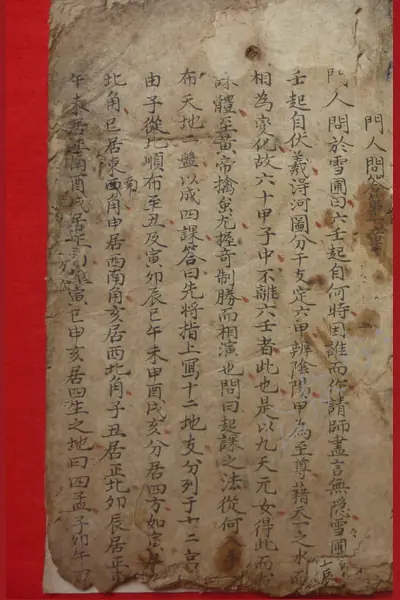 門人問答第章
門人問於雪圃曰六壬起自何時因誰而作請師盡言無隱雪圃
壬起自伏羲得河圖分干支定六甲辨陰陽甲為至尊藉天一之水而
相為変化故六十甲子中不離六壬者此也是以九天元女得此而
體至黃帝擒蚩尤握奇制勝而相演也問曰起課之法從何入手
布天地二盤以成四課答曰先將指上寫十二地支分列于十二宮
由子從北順布至丑及寅卯辰巳午未申酉戌亥分居四方如寅居
北角巳居東西南角申居西南角亥居西北角子丑居正北卯辰居正
午未居正南酉戌居正寅巳申亥居四生之地曰四孟子卯午